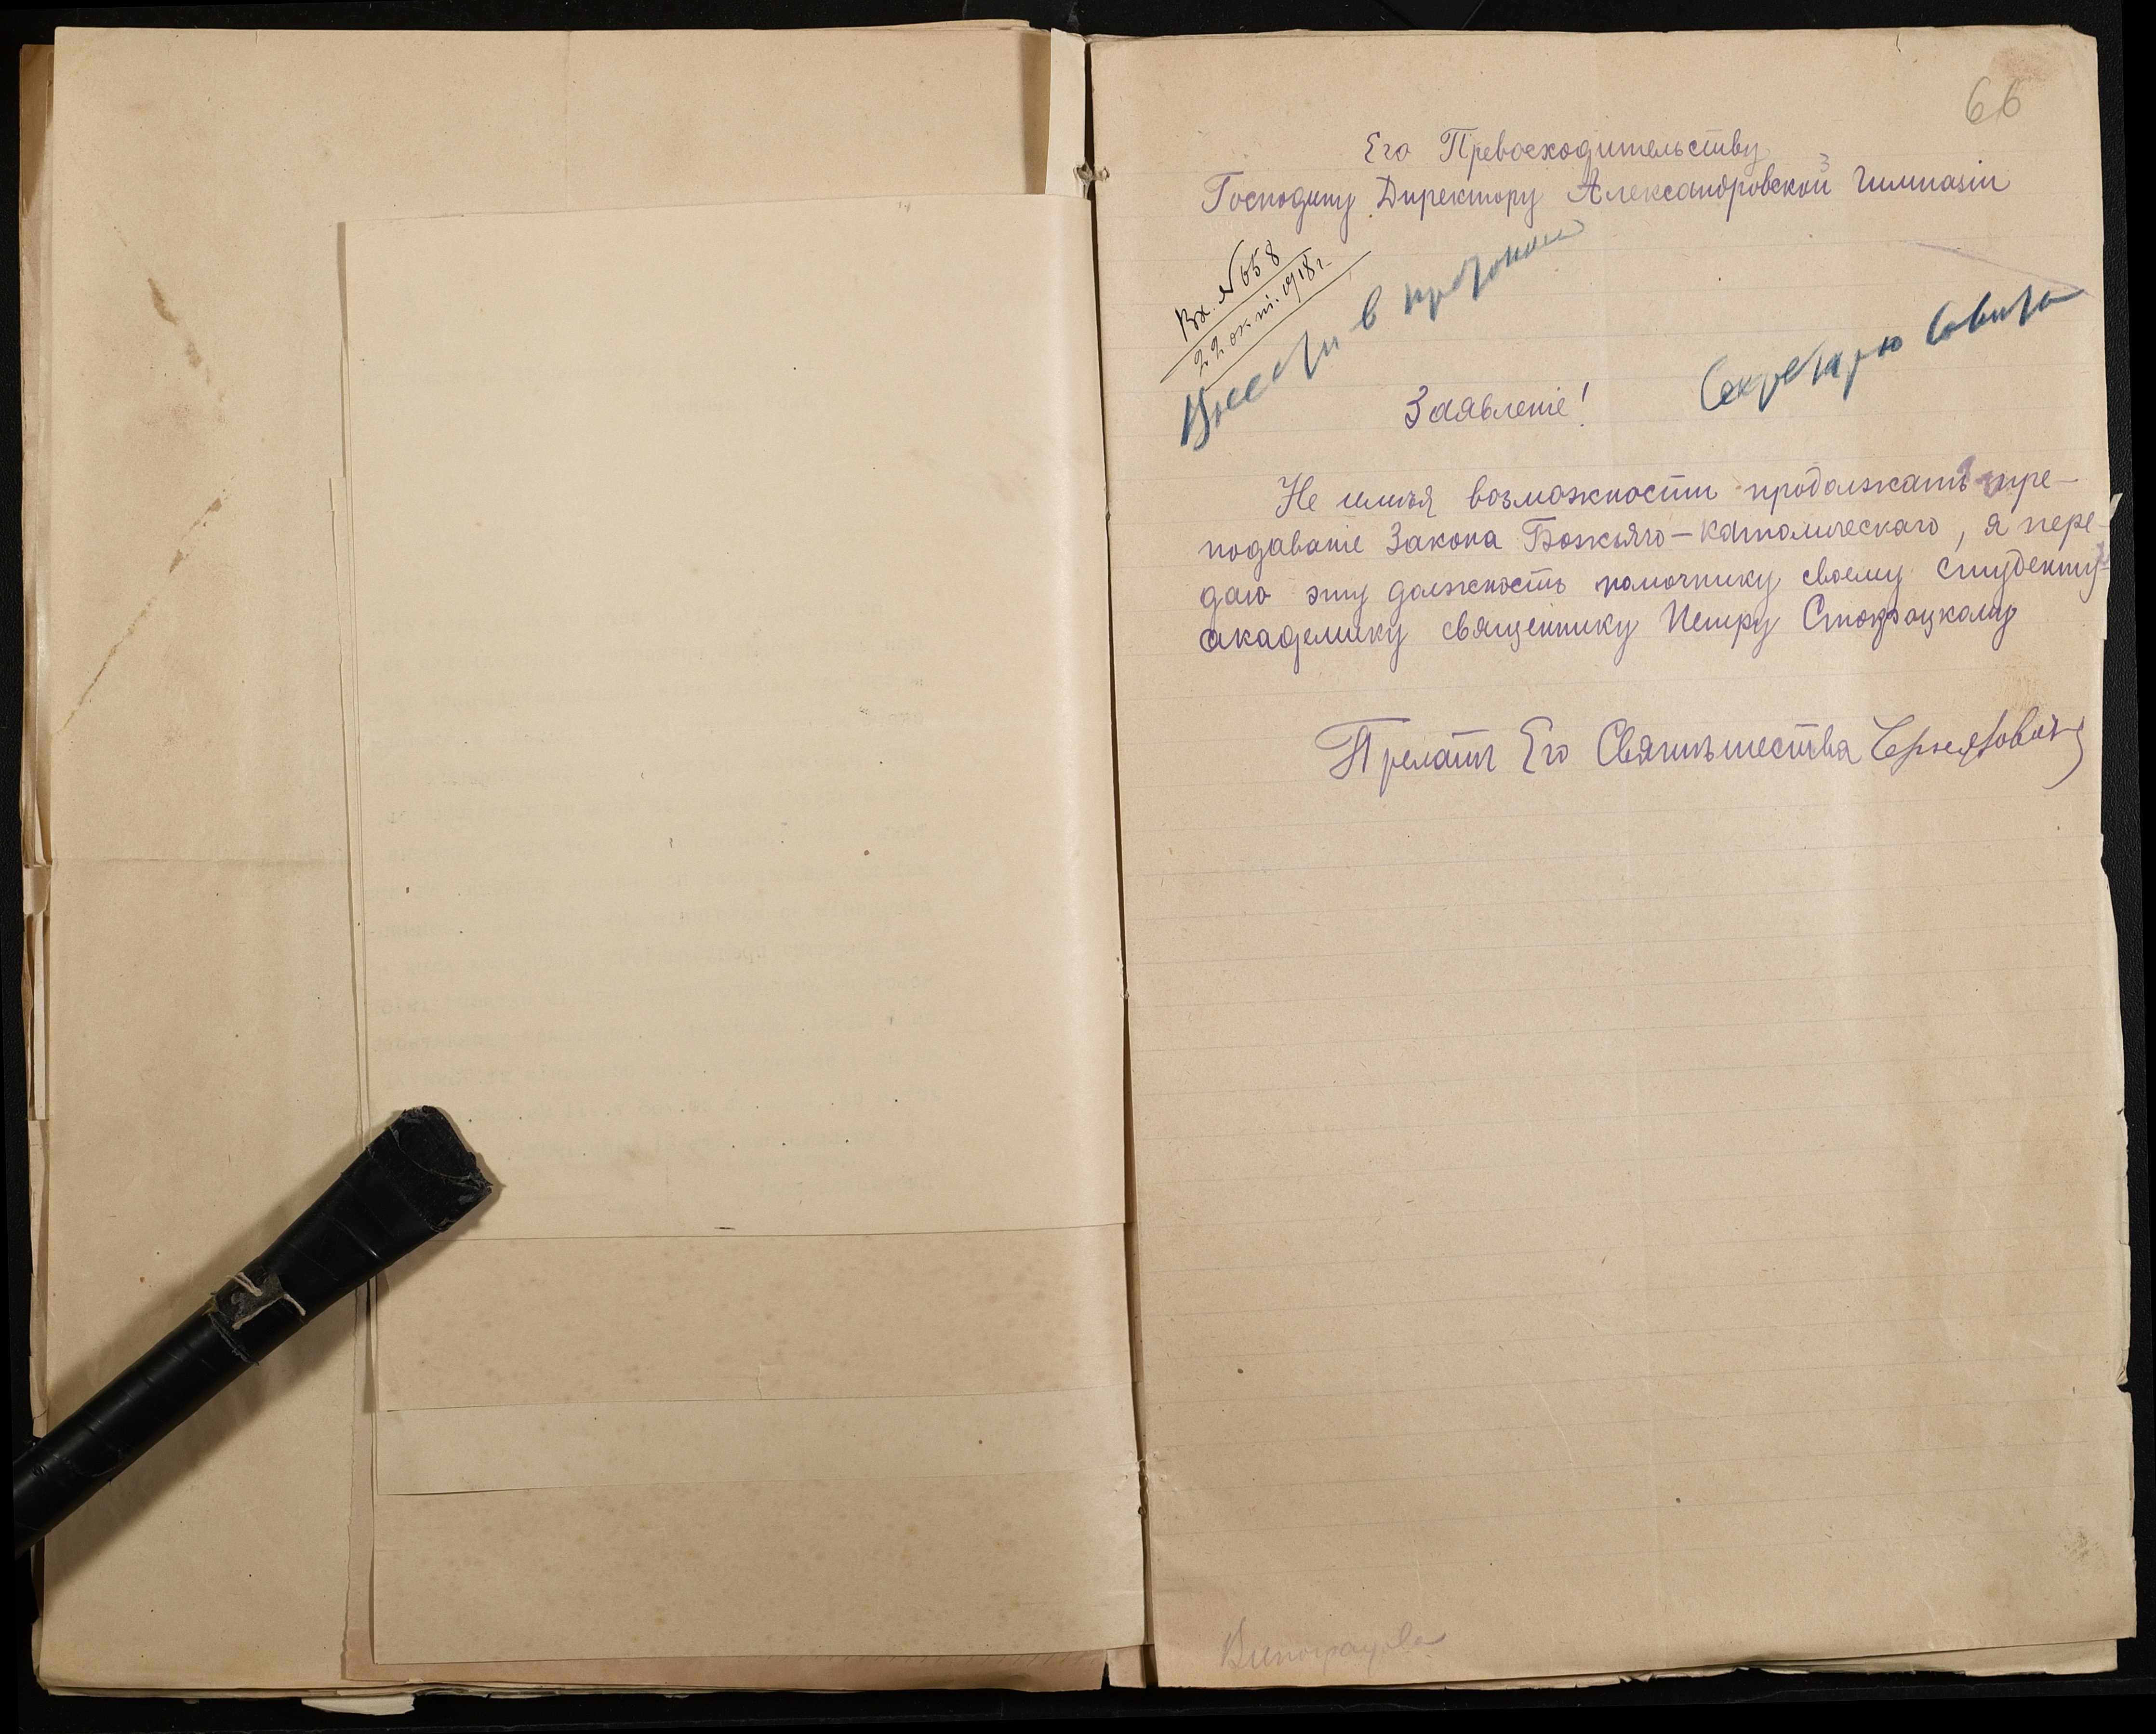 66
Его Превосходительству
Господину Директору Александровской 3 Гимназіи
Вх. №658
22 окт. 1918 г.
Внести в протокол
Секретарю Совета
Заявленіе!
Не имѣя возможности продолжать пре-
подаваніе Закона Божьяго-Католическаго, я пере-
даю эту должность помочнику своему студенту-
академику священнику Петру
Прелатъ Его Святѣшества